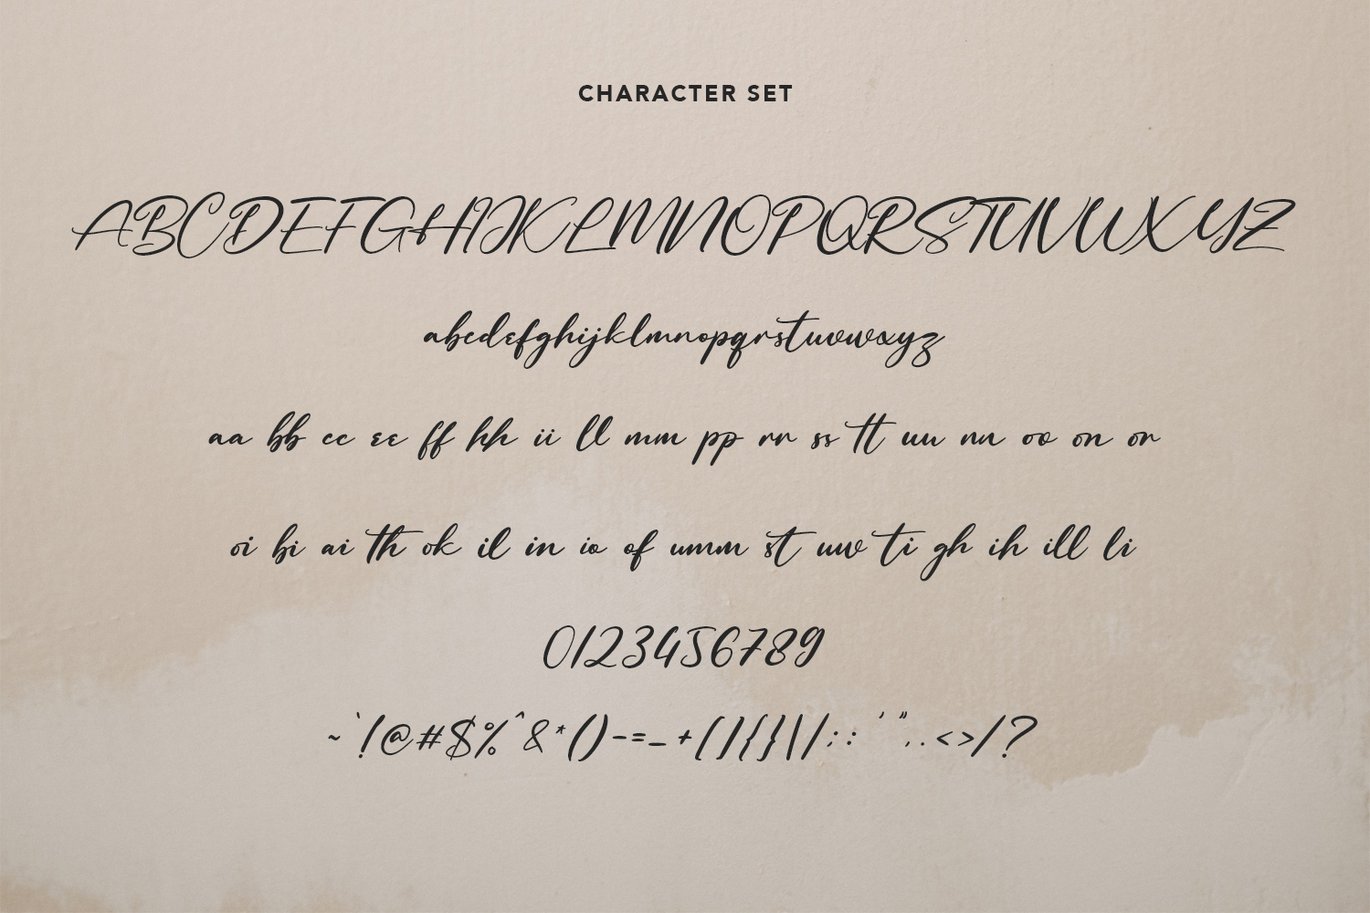 CHARACTER SET
ABCDEFGHIJKLMNOPQRSTUVWXYZ
abcdefghijklmnopqrstuvwxyz
aa bb cc ee ff hh ii ll mm pp rr ss tt uu nn oo on or
oi bi ai th ok il in io of umm st uw ti gh ih ill li
0123456789
~`!@#$%^&*()-=_+[]{}\|/;:'",.<>/?